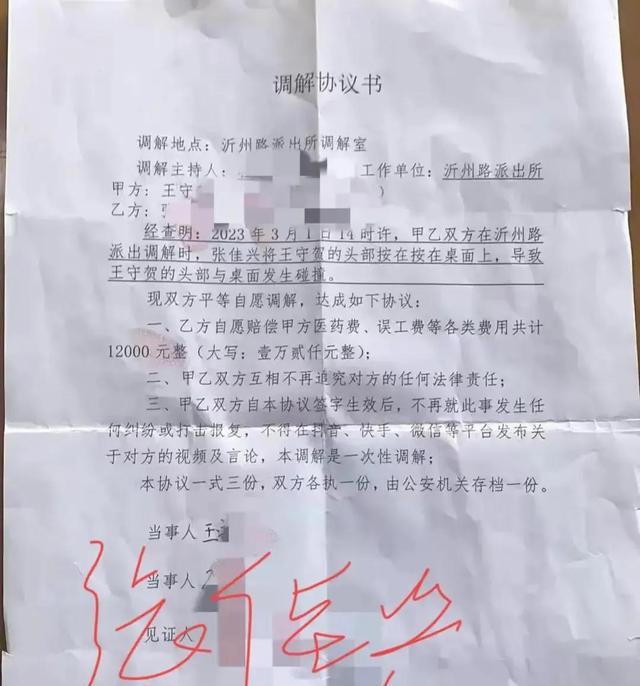 调解协议书
调解地点：沂州路派出所调解室
调解主持人： 工作单位：沂州路派出所
甲方：王守 ）
乙方：
经查明：2023年3月1日14时许，甲乙双方在沂州路
派出调解时，张佳兴将王守贺的头部按在按在桌面上，导致
王守贺的头部与桌面发生碰撞。
现双方平等自愿调解，达成如下协议：
一、乙方自愿赔偿甲方医药费、误工费等各类费用共计
12000元整（大写：壹万贰仟元整）；
二、甲乙双方互相不再追究对方的任何法律责任；
三、甲乙双方自本协议签字生效后，不再就此事发生任
何纠纷或打击报复，不得在抖音、快手、微信等平台发布关
于对方的视频及言论，本调解是一次性调解；
本协议一式三份，双方各执一份，由公安机关存档一份。
当事人 王
当事人
见证人
张佳兴